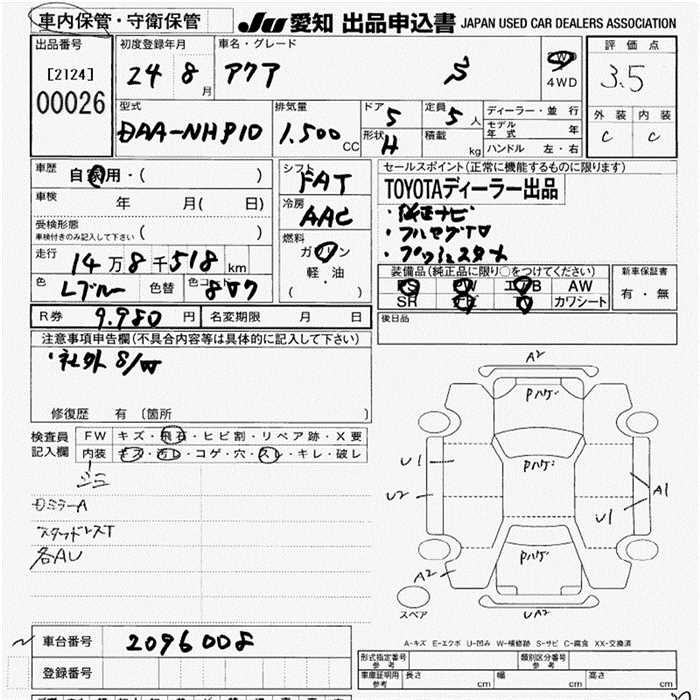 車内保管・守衛保管
JU 愛知 出品申込書 JAPAN USED CAR DEALERS ASSOCIATION
出品番号 初度登録年月 車名・グレード 評価点
[2124] 24 8月 アクア S 2WD 4WD 3.5
00026
型式 排気量 ドア 定員 ディーラー・並行 外装 内装
DAA-NHP10 1.500 CC 5 5人 モデル年式 年 C C
形状 H 積載 kg ハンドル 左・右
車歴 自家用・( ) シフト FAT セールスポイント(正常に機能するものに限ります)
車検 年 月( 日) 冷房 AAC TOYOTAディーラー出品
受検形態 車検付きのみ記入して下さい ( ) 燃料 ・純正ナビ
走行 14万8千518km ガソリン ・フルセグTV
軽・油 ・プッシュスタート
色 Lブルー 色替 色コード 8W7 ( )
装備品(純正品に限り○をつけてください) 新車保証書
PS PW エアB AW 有・無
SR ナビ TV カワシート
R券 9.980円 名変期限 月 日 後日品
注意事項申告欄(不具合内容等は具体的に記入して下さい)
・社外S/W
修復歴 有 〔箇所 〕
検査員記入欄 FW キズ・飛石・ヒビ割・リペア跡・X要
内装 キズ・汚レ・コゲ・穴・スレ・キレ・破レ
シミ
Dミラー A
スタッドレスT
各AU
A2
Pハゲ
Pハゲ
U1
U2
A1
U1
Pハゲ
A2
スペア
UA2
A-キズ E-エクボ U-凹み W-補修跡 S-サビ C-腐食 XX-交換済
車台番号 2096008
登録番号
形式指定番号 参考 類別区分番号 参考
車庫証明用 参考 長さ cm 幅 cm 高さ cm